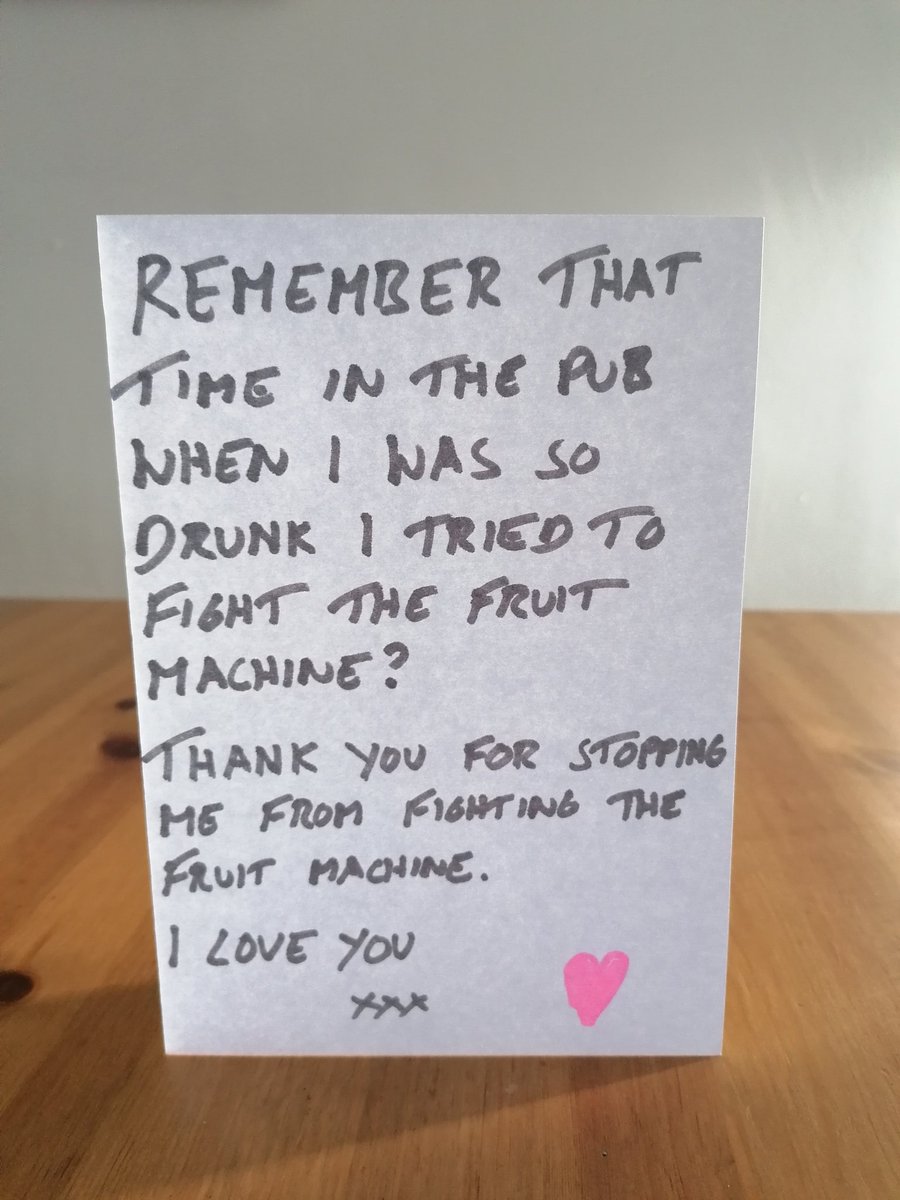 REMEMBER THAT
TIME IN THE PUB
WHEN I WAS SO
DRUNK I TRIED TO
FIGHT THE FRUIT
MACHINE?
THANK YOU FOR STOPPING
ME FROM FIGHTING THE
FRUIT MACHINE.
I LOVE YOU
xxx